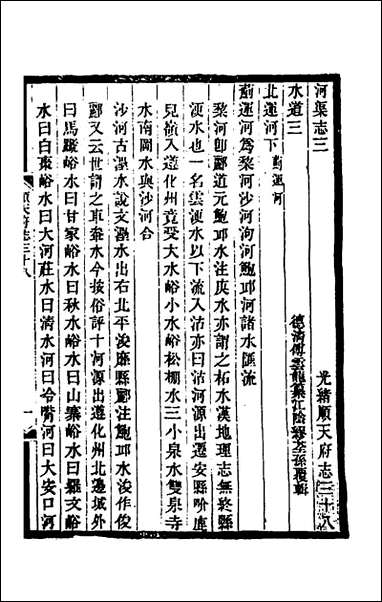 光緒順天府志三十八
河渠志三
德清傅雲龍纂江陰繆荃孫覆輯
水道三
北運河下薊運河
薊運河為黎河沙河泃河鮑邱河諸水匯流
黎河卽酈道元鮑邱水注庚水亦謂之柘水漢地理志無終縣
浭水也一名雲浭水以下流入沽亦曰沽河源出遷安縣
兒嶺入遵化州竟受大水峪小水峪松棚水三小泉水雙泉寺
水南關水與沙河合
沙河古灅水說文灅水出右北平浚靡縣酈注鮑邱水浚作俊
酈又云世謂之車軬水今按俗評十河源出遵化州北邊城外
曰馬蹤峪水曰甘家峪水曰秋峪水曰山寨峪水曰羅文峪
水曰白棗峪水曰大河莊水曰清水河曰令嘴河曰大安口河
順天府志三十八
一